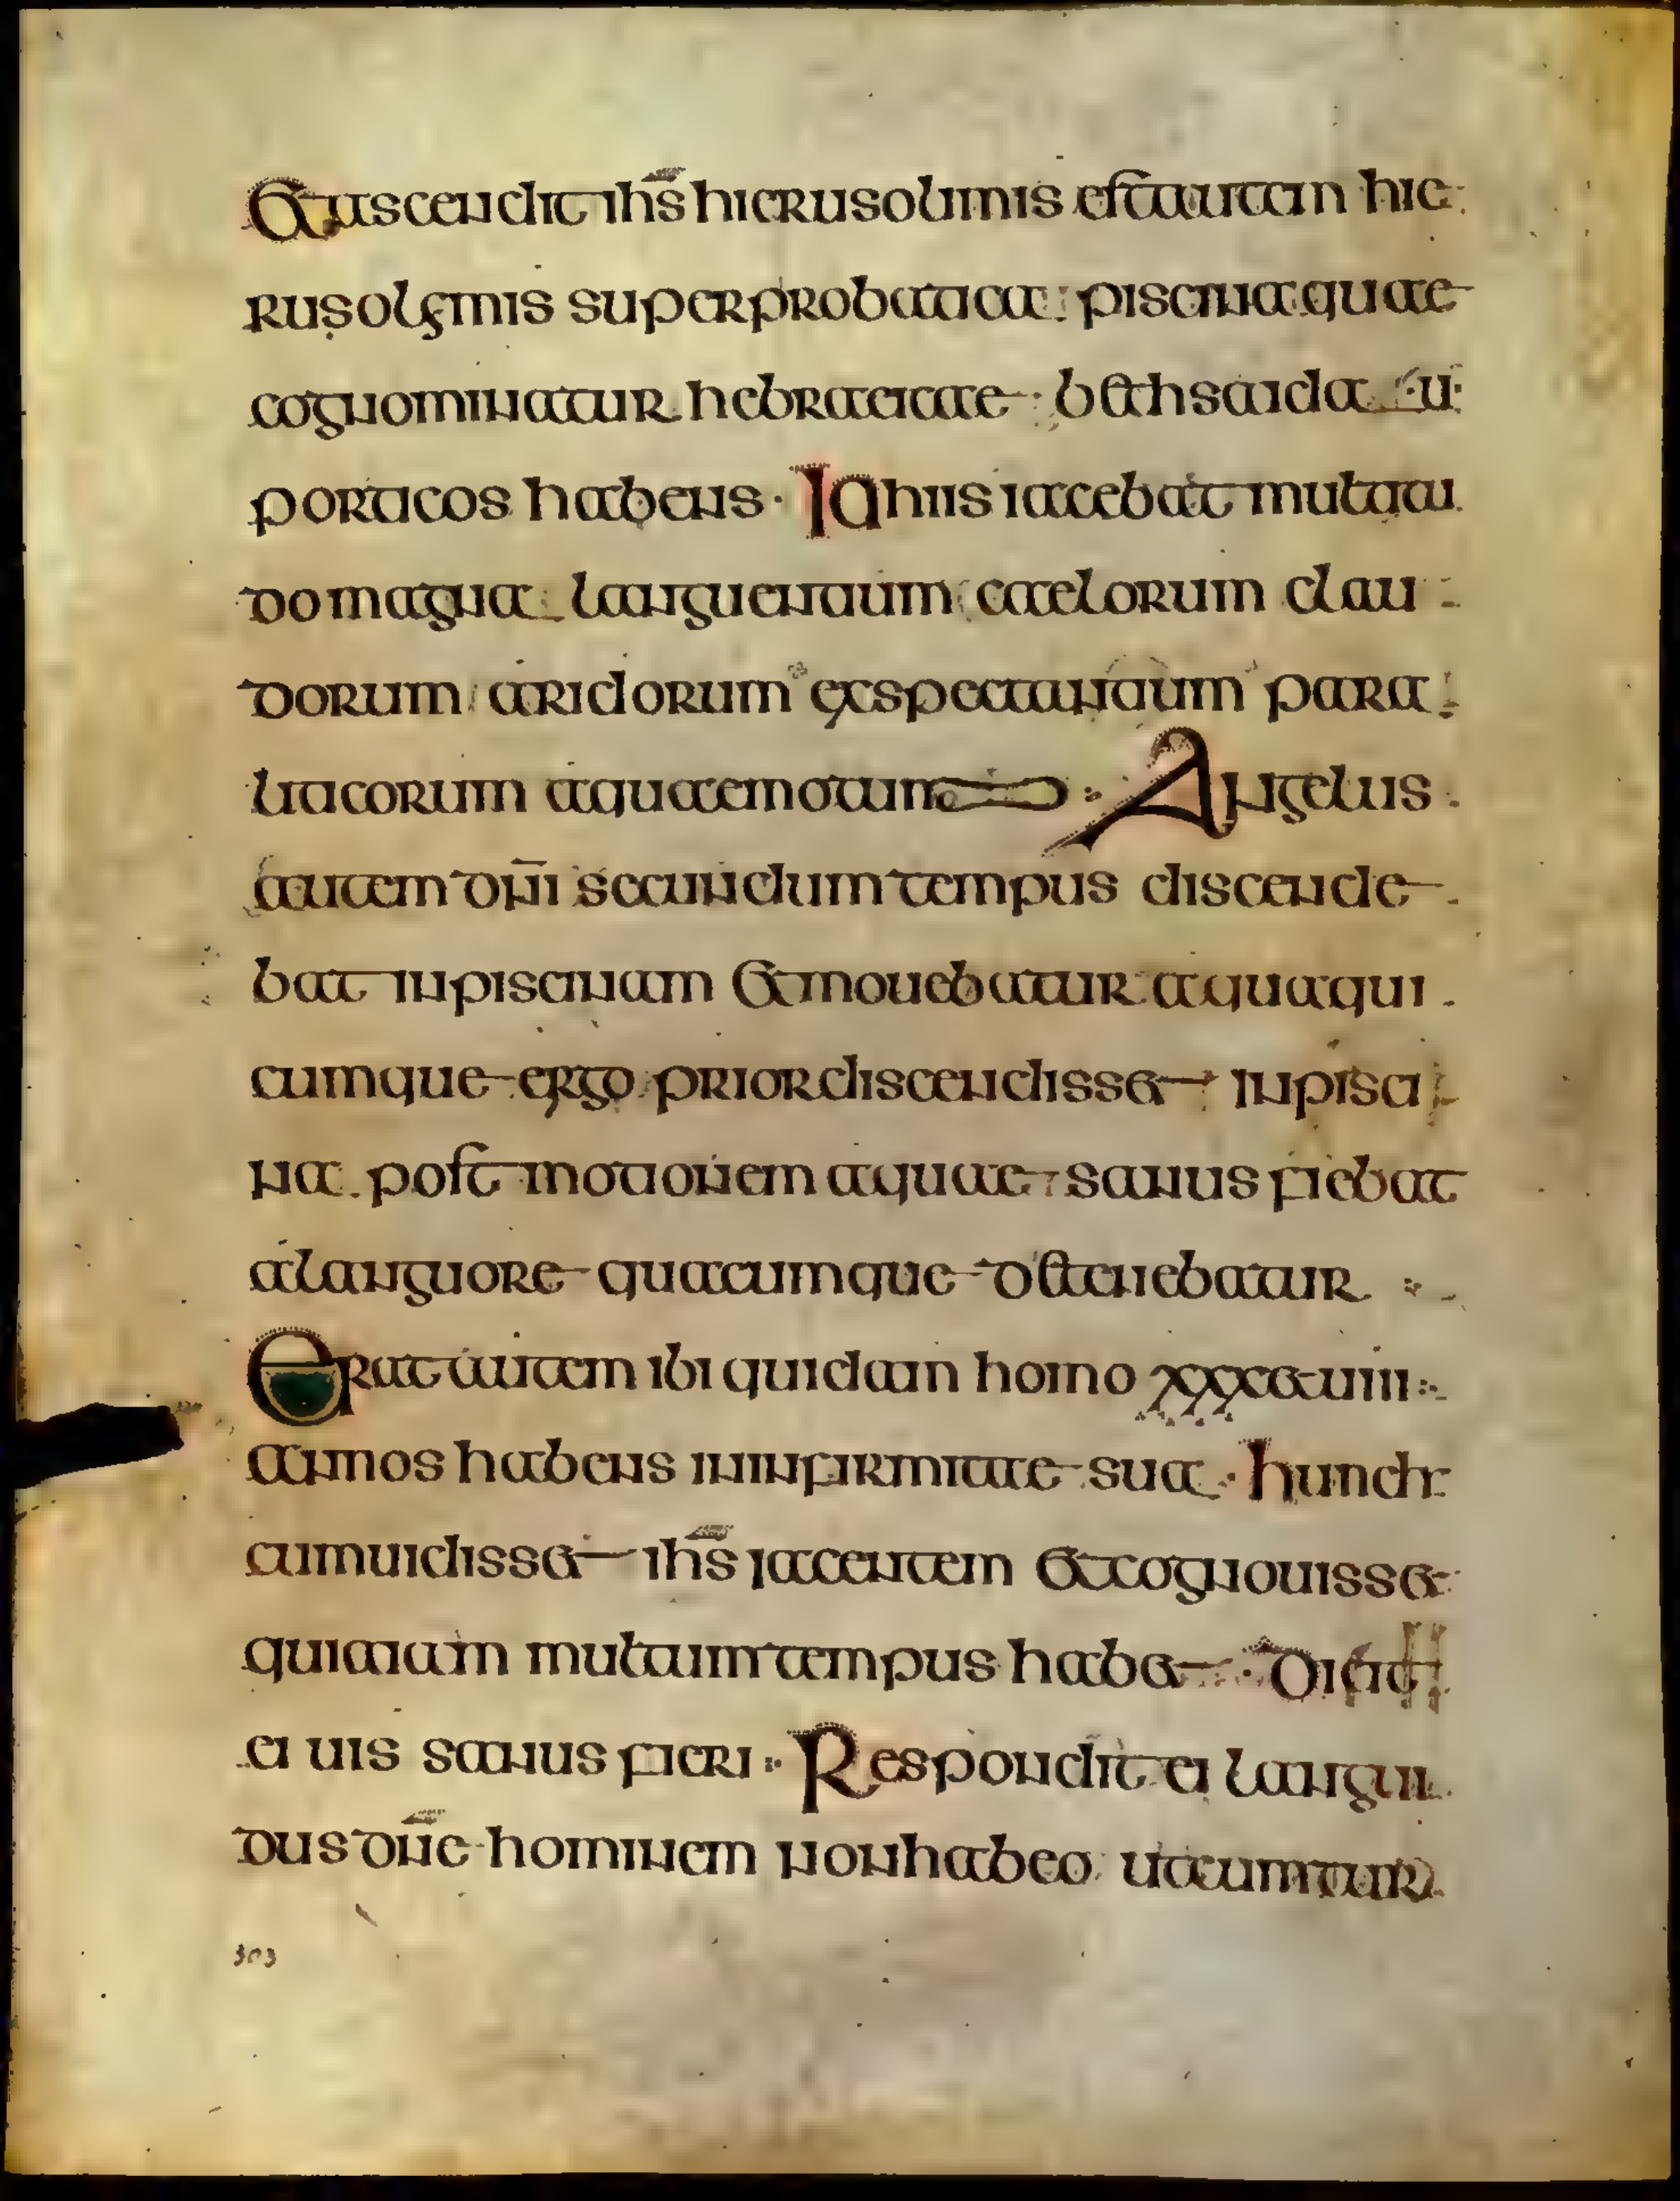 Et ascendit ihs hierusolimis est autem hie
rusolymis super probatica piscina quae
cognominatur hebraeicae bethsaida u
porticos habens · In hiis iacebat multitu
do magna languentium caelorum clau
dorum aridorum exspectantium para
liticorum aquae motum · Angelus
autem dni secundum tempus discende
bat in piscinam et mouebatur aqua qui
cumque ergo prior discendisset in pisci
na post motionem aquae sanus fiebat
a languore quacumque detenebatur
Erat autem ibi quidam homo xxx et uiii
annos habens in infirmitate sua · hunc
cum uidisset ihs iacentem et cognouisset
quia iam multum tempus habet · Dicit
ei uis sanus fieri · Respondit ei langui
dus dne hominem non habeo ut cum tur
303